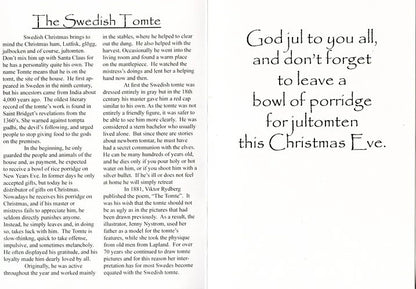 The Swedish Tomte
Swedish Christmas brings to
mind the Christmas ham, Lutfisk, glögg,
julbocken and of course, jultomten.
Don't mix him up with Santa Claus for
he has a personality quite his own. The
name Tomte means that he is on the
tomt, the site of the house. He first ap-
peared in Sweden in the ninth century,
but his ancestors came from India about
4,000 years ago. The oldest literary
record of the tomte's work is found in
Saint Bridget's revelations from the
1360's. She warned against tomptа
gudhi, the devil's following, and urged
people to stop giving food to the gods
on the premises.
In the beginning, he only
guarded the people and animals of the
house and, as payment, he expected
to receive a bowl of rice porridge on
New Years Eve. In former days he only
accepted gifts, but today he is
distributor of gifts on Christmas.
Nowadays he receives his porridge on
Christmas, and if his master or
mistress fails to appreciate him, he
seldom directly punishes anyone.
Instead, he simply leaves and, in doing
so, takes luck with him. The Tomte is
slow-thinking, quick to take offense,
impulsive, and sometimes melancholy.
He often displayed his gratitude, and his
loyalty made him dearly loved by all.
Originally, he was active
throughout the year and worked mainly
in the stables, where he helped to clear
out the dung. He also helped with the
harvest. Occasionally he went into the
living room and found a warm place
on the mantlepiece. He watched the
mistress's doings and lent her a helping
hand now and then.
At first the Swedish tomte was
dressed entirely in gray, but in the 18th
century his master gave him a red cap
similar to his own. As the tomte was not
entirely a friendly figure, it was safer to
be able to see him more clearly. He was
considered a stern bachelor who usually
lived alone. But since there are stories
about newborn tomtar, he must have
had a secret communion with the elves.
He can be many hundreds of years old,
and he dies only if you pour holy or hot
water on him, or if you shoot him with a
silver bullet. If he's ill or does not feel
at home he will simply retreat
In 1881, Viktor Rydberg
published the poem, "The Tomte". It
was his wish that the tomte should not
be as ugly as in the pictures that had
been drawn previously. As a result, the
illustrator, Jenny Nystrom, used her
father as a model for the tomte's
features, while she took the physique
from old men from Lapland. For over
70 years she continued to draw tomte
pictures and for this reason her inter-
pretation has for most Swedes become
equated with the Swedish tomte.
God jul to you all,
and don't forget
to leave a
bowl of porridge
for jultomten
this Christmas Eve.